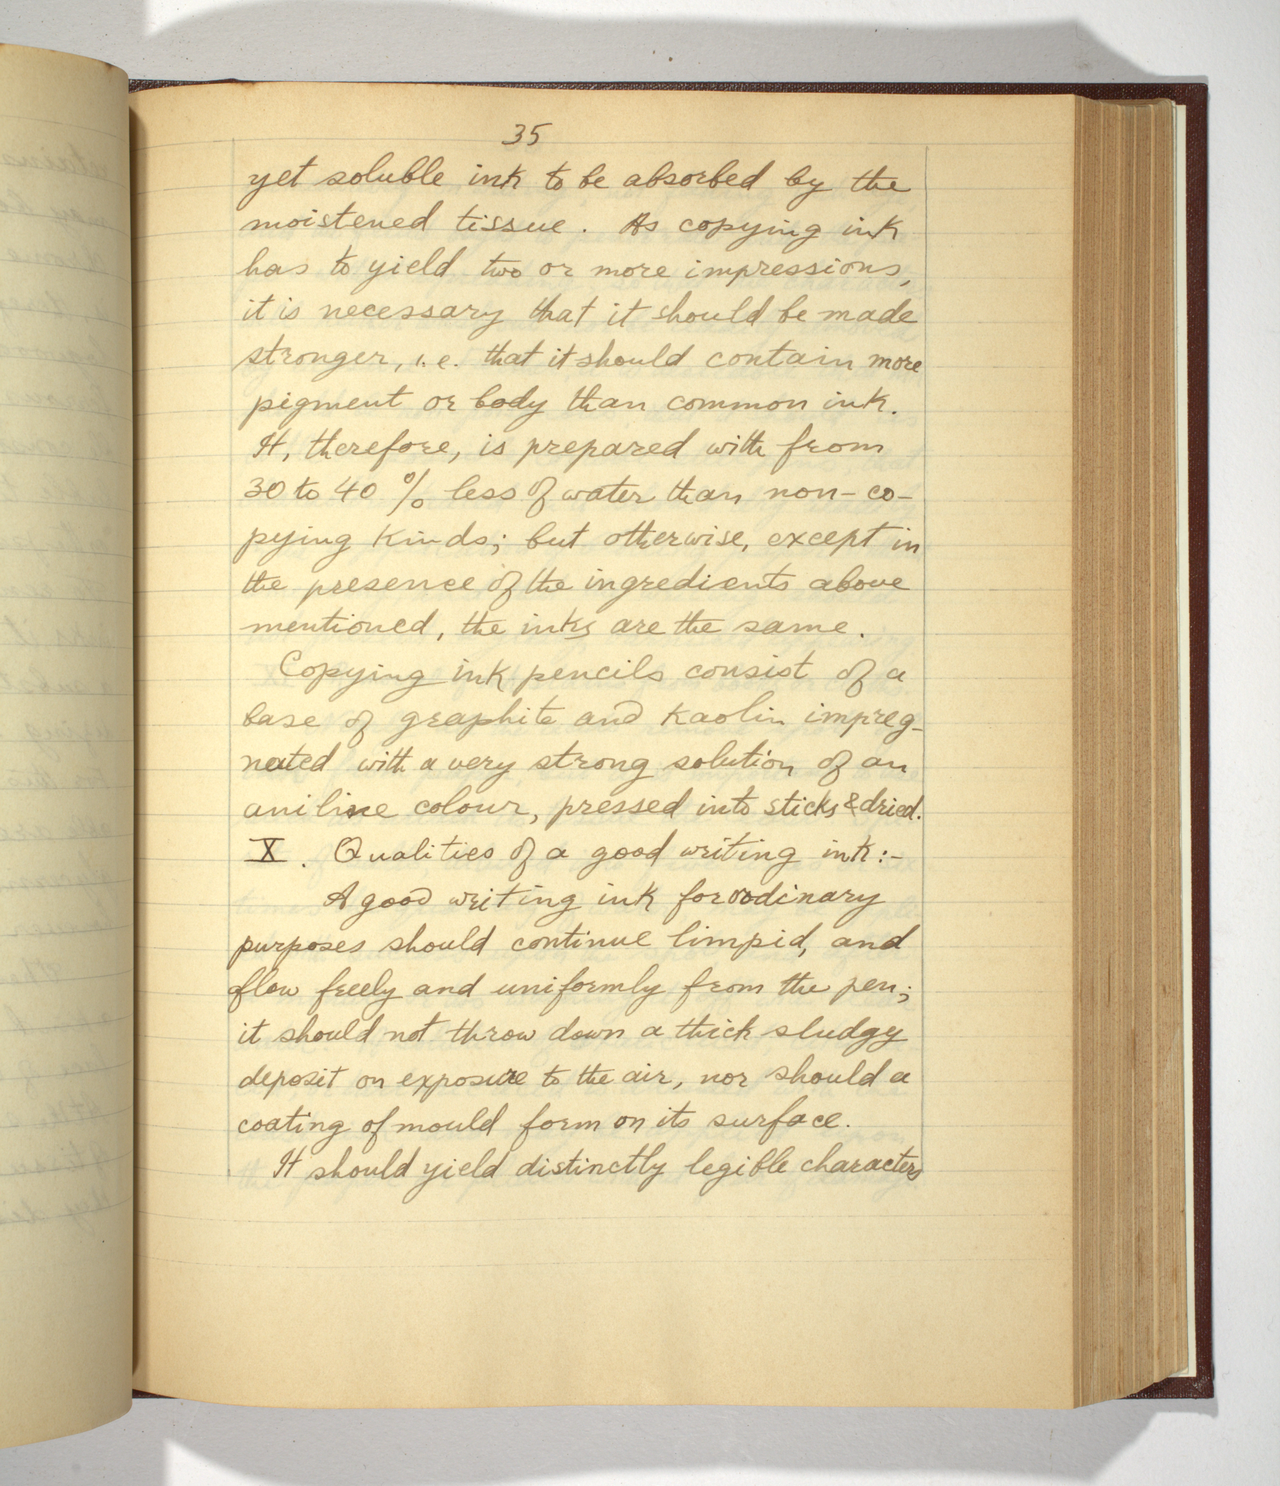 35
yet soluble ink to be absorbed by the
moistened tissue. As copying ink
has to yield two or more impressions,
it is necessary that it should be made
stronger, i.e. that it should contain more
pigment or body than common ink.
It, therefore, is prepared with from
30 to 40 % less of water than non-co-
pying kinds; but otherwise, except in
the presence of the ingredients above
mentioned, the inks are the same.
Copying ink pencils consist of a
base of graphite and kaolin impreg-
nated with a very strong solution of an
aniline colour, pressed into sticks & dried.
X. Qualities of a good writing ink:-
A good writing ink for ordinary
purposes should continue limpid, and
flow freely and uniformly from the pen;
it should not throw down a thick sludgy
deposit on exposure to the air, nor should a
coating of mould form on its surface.
It should yield distinctly legible characters